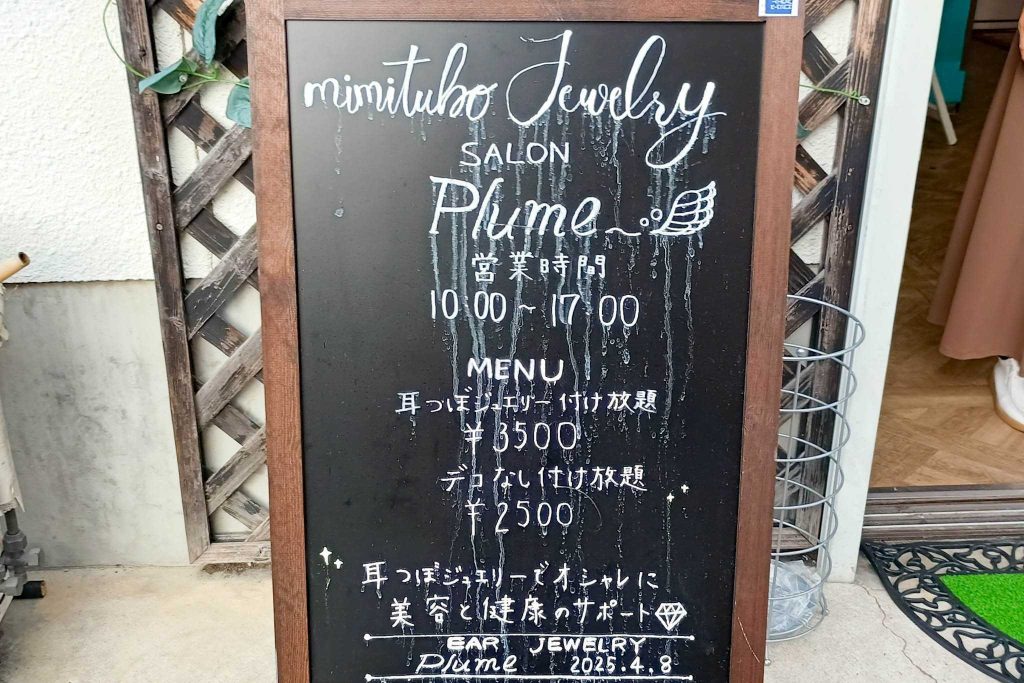 mimitubo Jewelry
SALON
Plume
営業時間
10:00~17:00
MENU
耳つぼジュエリー付け放題
¥3500
デコなし付け放題
¥2500
耳つぼジュエリーでオシャレに
美容と健康のサポート
EAR JEWELRY
Plume 2025.4.8